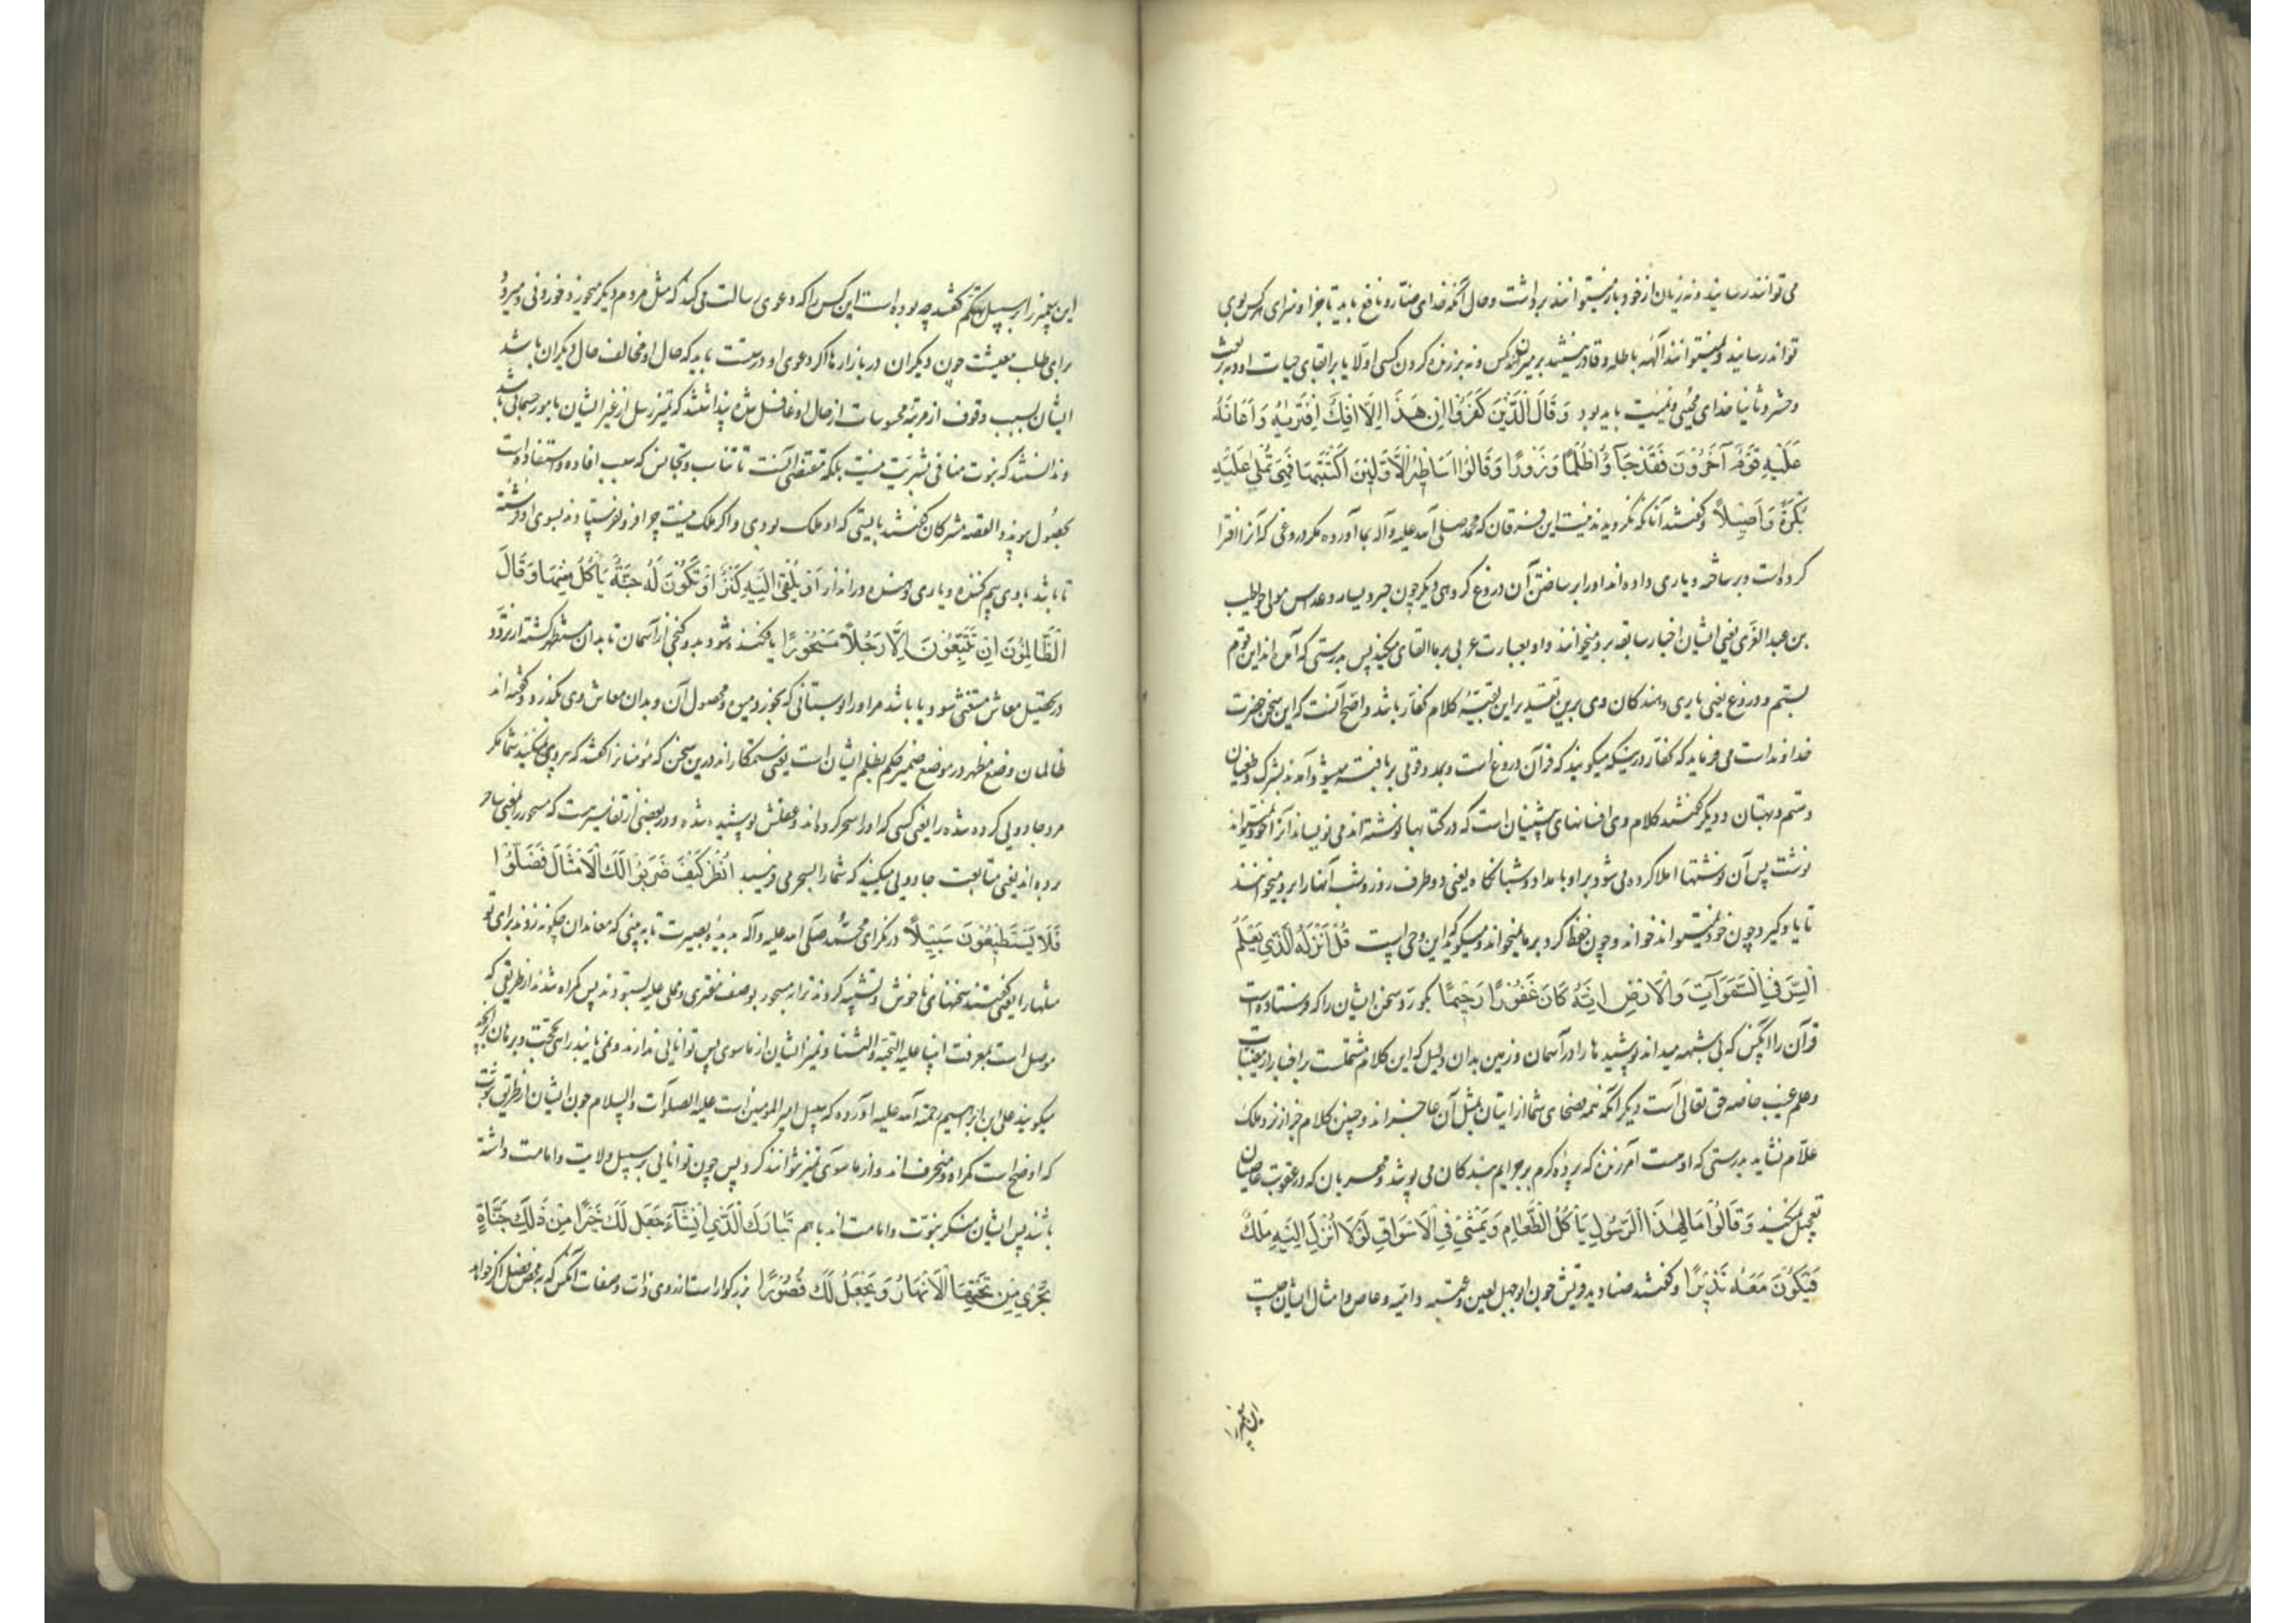 می‌توانند رسانید و نه زیان از خود باز میتوانند برداشت و حال آنکه خدای ضار و نافع باید تا جزا و سزای هر کس بوی
تواند رسانید و نمیتوانند آلهه باطله و قادر نیستند بر میراندن کس و نه بر زنده کردن کسی اولا یا بر ابقای حیات او و نه بر بعث
و حشر و ثانیا خدای محیی و ممیت باید بود وَقَالَ الَّذِینَ کَفَرُوا اِن هَذَا اِلَّا افِکٌ اِفتَرَیٰهُ وَاَعَانَهُ
عَلَیْهِ قَوْمٌ آخَرُونَ فَقَدْ جَآؤُا ظُلْمًا وَزُورًا وَقَالُوا اَسَاطِیرُ الْاَوَّلِینَ اکْتَتَبَهَا فَهِیَ تُمْلٰی عَلَیْهِ
بُکْرَةً وَاَصِیلًا و گفتند آنانکه نگرویدند نیست این فرقان که محمد صلی الله علیه و آله بما آورده مگر دروغی که آنرا افترا
کرده است و بر ساخته و یاری داده‌اند او را بر ساختن آن دروغ گروهی دیگر چون جبر و یسار و عداس مولی حویطب
بن عبد العزی یعنی ایشان اخبار سابقه برو میخوانند و او بعبارت عربی بر ما القای میکند پس بدرستی که آمده‌اند این قوم
بستم و دروغ یعنی یاری دهندگان وی برین تقدیر این تتمه کلام کفار باشد و اصح آنست که این سخن حضرت
خداوند است می‌فرماید که کفار درینکه میگویند که قرآن دروغ است و بمدد قومی بر بافته میشود آمدند بشرک و طغیان
و ستم و بهتان و دیگر گفتند کلام وی افسانهای پیشینیان است که در کتابها نوشته‌اند می نویساند آنرا خود نمیتواند
نوشت پس آن نوشتها املا کرده می شود بر او بامداد و شبانگاه یعنی دو طرف روز و شب آنها را برو میخوانند
تا یاد گیرد چون خود نمیتواند خواند و چون حفظ کرد بر ما میخواند و میگوید این وحی است قُلْ اَنْزَلَهُ الَّذِی یَعْلَمُ
السِّرَّ فِی السَّمَوَاتِ وَالْاَرْضِ اِنَّهُ کَانَ غَفُورًا رَحِیمًا بگو رد سخن ایشان را که فرستاده است
قرآن را آنکس که بی شبهه میداند پوشیدها را در آسمان و زمین بدان دلیل که این کلام مشتملست بر اخبار از مغیبات
و علم غیب خاصه حق تعالی است دیگر آنکه همه فصحای شما از اتیان بمثل آن عاجزاند و چنین کلام جز از نزد ملک
علام نشاید بدرستی که اوست آمرزنده که پرده کرم بر جرایم بندگان می پوشد و مهربان که در عقوبت عاصیان
تعجیل نمیکند وَقَالُوا مَالِ هٰذَا الرَّسُولِ یَأْکُلُ الطَّعَامَ وَیَمْشِی فِی الْاَسْوَاقِ لَوْلَا اُنْزِلَ اِلَیْهِ مَلَکٌ
فَیَکُونَ مَعَهُ نَذِیرًا و گفتند صنادید قریش چون ابوجهل لعین و عتبه و امیه و عاص و امثال ایشان
این پیغمبر را
این پیغمبر را بر سبیل تهکم گفتند چه بوده است این کس را که دعوی رسالت می‌کند که مثل مردم دیگر میخورد خوردنی و میرود
برای طلب معیشت چون دیگران در بازارها اگر دعوی او درست باید که حال او مخالف حال دیگران باشد
ایشان بسبب وقوف از مرتبه محسوسات از حال او غافل شده پنداشتند که تمیز رسل از غیر ایشان بامور جسمانی باشد
و ندانستند که نبوت منافی بشریت نیست بلکه مقتضی آنست تا تناسب و تجانس که سبب افاده و استفاده است
بحصول پیوندد القصه مشرکان گفتند بایستی که او ملک بودی و اگر ملک نیست چرا فرو نفرستادند بسوی او فرشته
تا باشد با وی بیم کننده و یاری دهنده در انذار اَوْ یُلْقٰی اِلَیْهِ کَنْزٌ اَوْ تَکُونُ لَهُ جَنَّةٌ یَأْکُلُ مِنْهَا وَقَالَ
الظَّالِمُونَ اِنْ تَتَّبِعُونَ اِلَّا رَجُلًا مَسْحُورًا یا فکنده شود بدو گنجی از آسمان تا بدان مستظهر گشته از تردد
در تحصیل معاش مستغنی شود و یا باشد مر او را بوستانی که بخورد میوه و محصول آن و بدان معاش وی بگذرد و گفته‌اند
ظالمان وضع مظهر در موضع ضمیر حکم بظلم ایشان است یعنی ستمکارانند درین سخن که مؤمنانرا گفتند که پیروی نمیکنید شما مگر
مرد جادویی کرده شده را یعنی کسی که او را سحر کرده‌اند و عقلش پوشیده شده و در بعضی از تفاسیرست که مسحور بمعنی ساحر
برده‌اند یعنی متابعت جادویی میکنید که شما را بسحر می فریبد اُنْظُرْ کَیْفَ ضَرَبُوا لَکَ الْاَمْثَالَ فَضَلُّوا
فَلَا یَسْتَطِیعُونَ سَبِیلًا در نگر ای محمد صلی الله علیه و آله بدیده بصیرت تا به بینی که معاندان چگونه زدند برای تو
مثلها را یعنی گفتند سخنهای ناخوش و تشبیه کردند ترا به مسحور بوصف مفتری و مملی علیه بستودند پس گمراه شدند از طریقی که
موصل است بمعرفت انبیا علیه التحیة و الثنا و تمیز ایشان از ماسوی پس توانایی ندارند و نمی یابند راهی بحجت و برهان بر آنچه
میگویند علی بن ابراهیم رحمة الله علیه آورده که سبیل امیر المومنین است علیه الصلوات و السلام چون ایشان از طریق نبوت
که اوضح است گمراه و منحرف‌اند و از ماسوی تمیز نتوانند کرد پس چون توانایی بر سبیل ولایت و امامت داشته
باشند پس ایشان منکر نبوت و امامت‌اند باهم تَبَارَکَ الَّذِی اِنْ شَآءَ جَعَلَ لَکَ خَیْرًا مِنْ ذٰلِکَ جَنَّاتٍ
تَجْرِی مِنْ تَحْتِهَا الْاَنْهَارُ وَیَجْعَلْ لَکَ قُصُورًا بزرگوار است از روی ذات و صفات آنکس که به محض فضل اگر خواهد